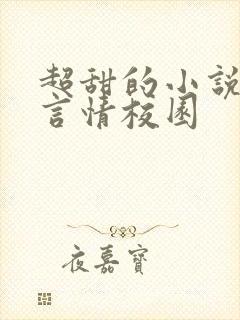 超甜的小說
言情校園
夜嘉寶